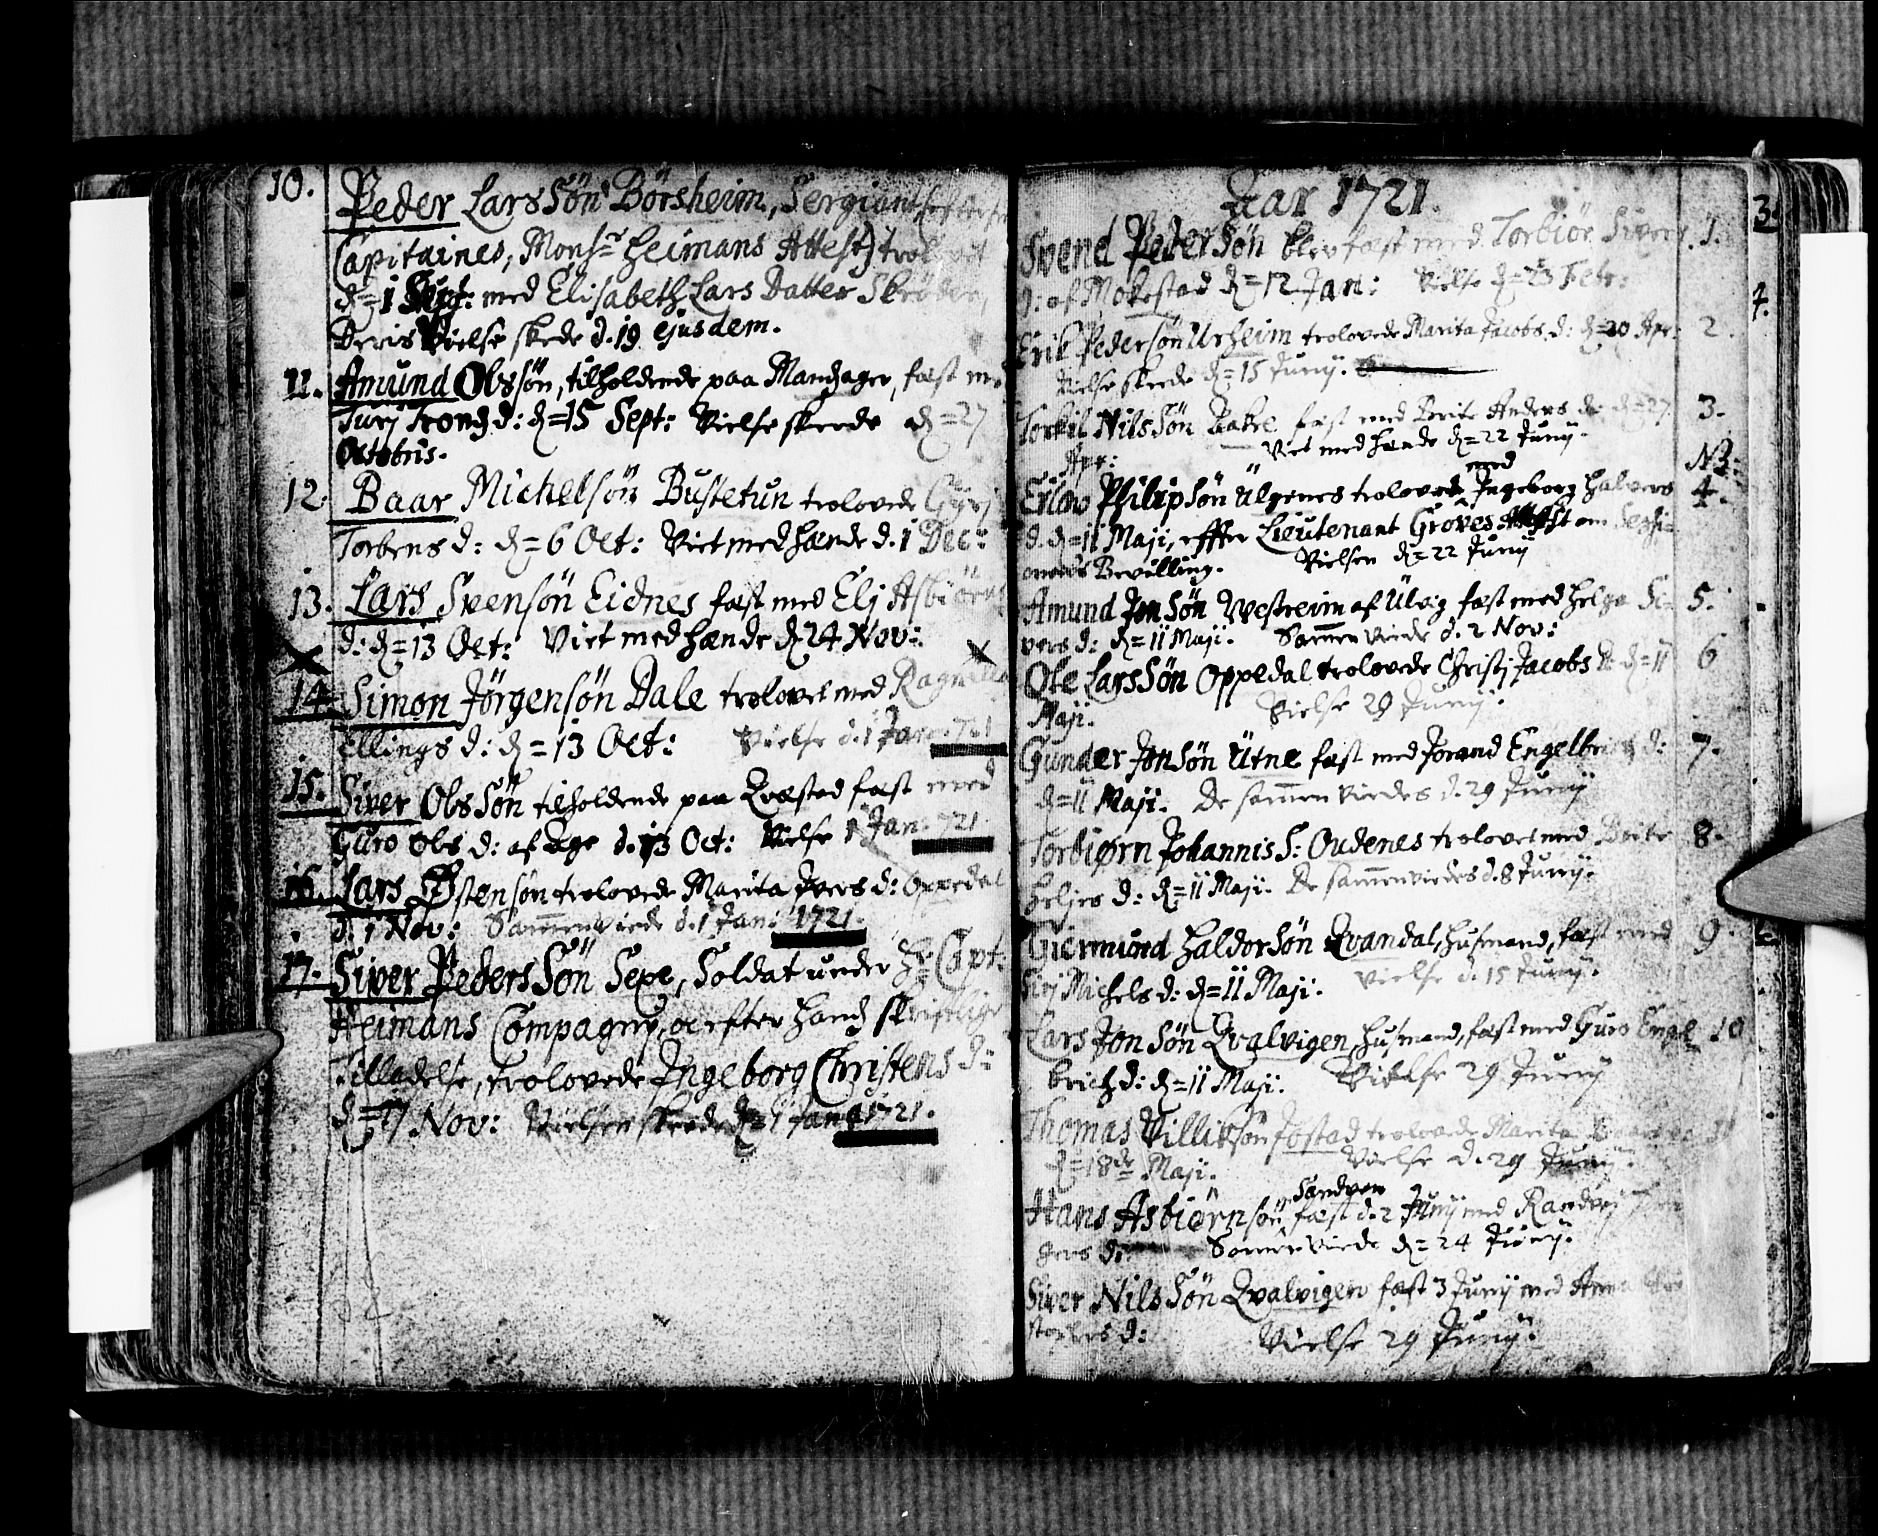 10. Peder LarsSøn Børsheim, Sergiant,
Capitaines, Monsr Heimans Attest) trolovit
d = 1 Sept: med Elisabeth Lars Datter
Deris Vielse skede d. 19 Ejusdem.
11. Amund Olssøn, tilholdende paa Mandzager, fæst med
Turij Trondz d: d = 15 Sept: Vielse skeede d = 27
Octobris.
12. Baar Michelsøn Bustetun trolovede Gurj
Torbens d: d = 6 Oct: Viet med hænde d. 1 Dec:
13. Lars Svensøn Eidnes fæst med Elj Asbiørns
d: d = 13 Oct: Viet med hænde d. 24 Nov:
14. Simon Jørgensøn Dale trolovet med
Ellings d: d = 13 Oct: Vielse d. 1 Jan: 721
15. Siver OlsSøn tilholdende paa Qvæstad fæst med
Guro Ols d: af Age d. 13 Oct: Vielse 1 Jan: 721
16. Lars Østensøn trolovede Marita Ivers d: Oppedal
d. 1 Nov: Sammenviede d. 1 Jan: 1721.
17. Siver PedersSøn Sexe, Soldat under Hr Capt:
Heimans Compagny, oc efter Handz skriftlige
Tilladelse, trolovede Ingeborg Christens d:
d = 17 Nov: Vielsen skeede d = 1 Jan: 1721.
Aar 1721.
Svend PederSøn blev fæst med Torbiør Sivers 1.
d: af Mokestad d = 12 Jan: Vielse d = 23 Febr:
Erik Pedersøn Urheim trolovede Marita Jacobs d: d = 20 Apr: 2.
Vielse skeede d = 15 Junij.
Torkil NilsSøn Bakke fæst med Brite Anders d: d = 27 3.
Apr: Viet med hænde d = 22 Junij.
NB:
med
Erlow PhilipSøn Ulgenes trolovet Ingeborg Halvers 4.
d. d = 11 Maji, effter Lieutenant Groves Attest om
Bevilling. Vielsen d = 22 Junij
Amund JonSøn Westreim af Ulvig fæst med Helga Si- 5.
vers d: d = 11 Maji. Sammenviede d. 2 Nov:
Ole LarsSøn Oppedal trolovede Christj Jacobs D: d = 11 6
Maji. Vielse 29 Junij.
Gunder JonSøn Utne fæst med Jorand Engelbricz d: 7.
d = 11 Maji. De sammenviedes d. 29 Junij
Torbiørn Johannis S: Oudenes trolovet med Brite 8.
Heljes d: d = 11 Maji. De sammenviedes d. 8 Junij.
Giermund HaldorSøn Qvandal, husmand, fæst med 9.
Sirj Michels d: d = 11 Maji. Vielse d. 15 Junij.
Lars JonSøn Qvalvigen, husmand, fæst med Guro Engel 10
brichz d: d = 11 Maji. Vielse 29 Junij
Thomas Villiksøn Jostad trolovede Marita 11
d = 18de Maji. Vielse d. 29 Junij.
Sandven
Hans Asbiørnsøn fæst d. 2 Junij med Randvej
gers d: Sammenviede d = 24 Junij.
Siver NilsSøn Qvalvigen fæst 3 Junij med Anna
d: Vielse 29 Junij.
3.
4.